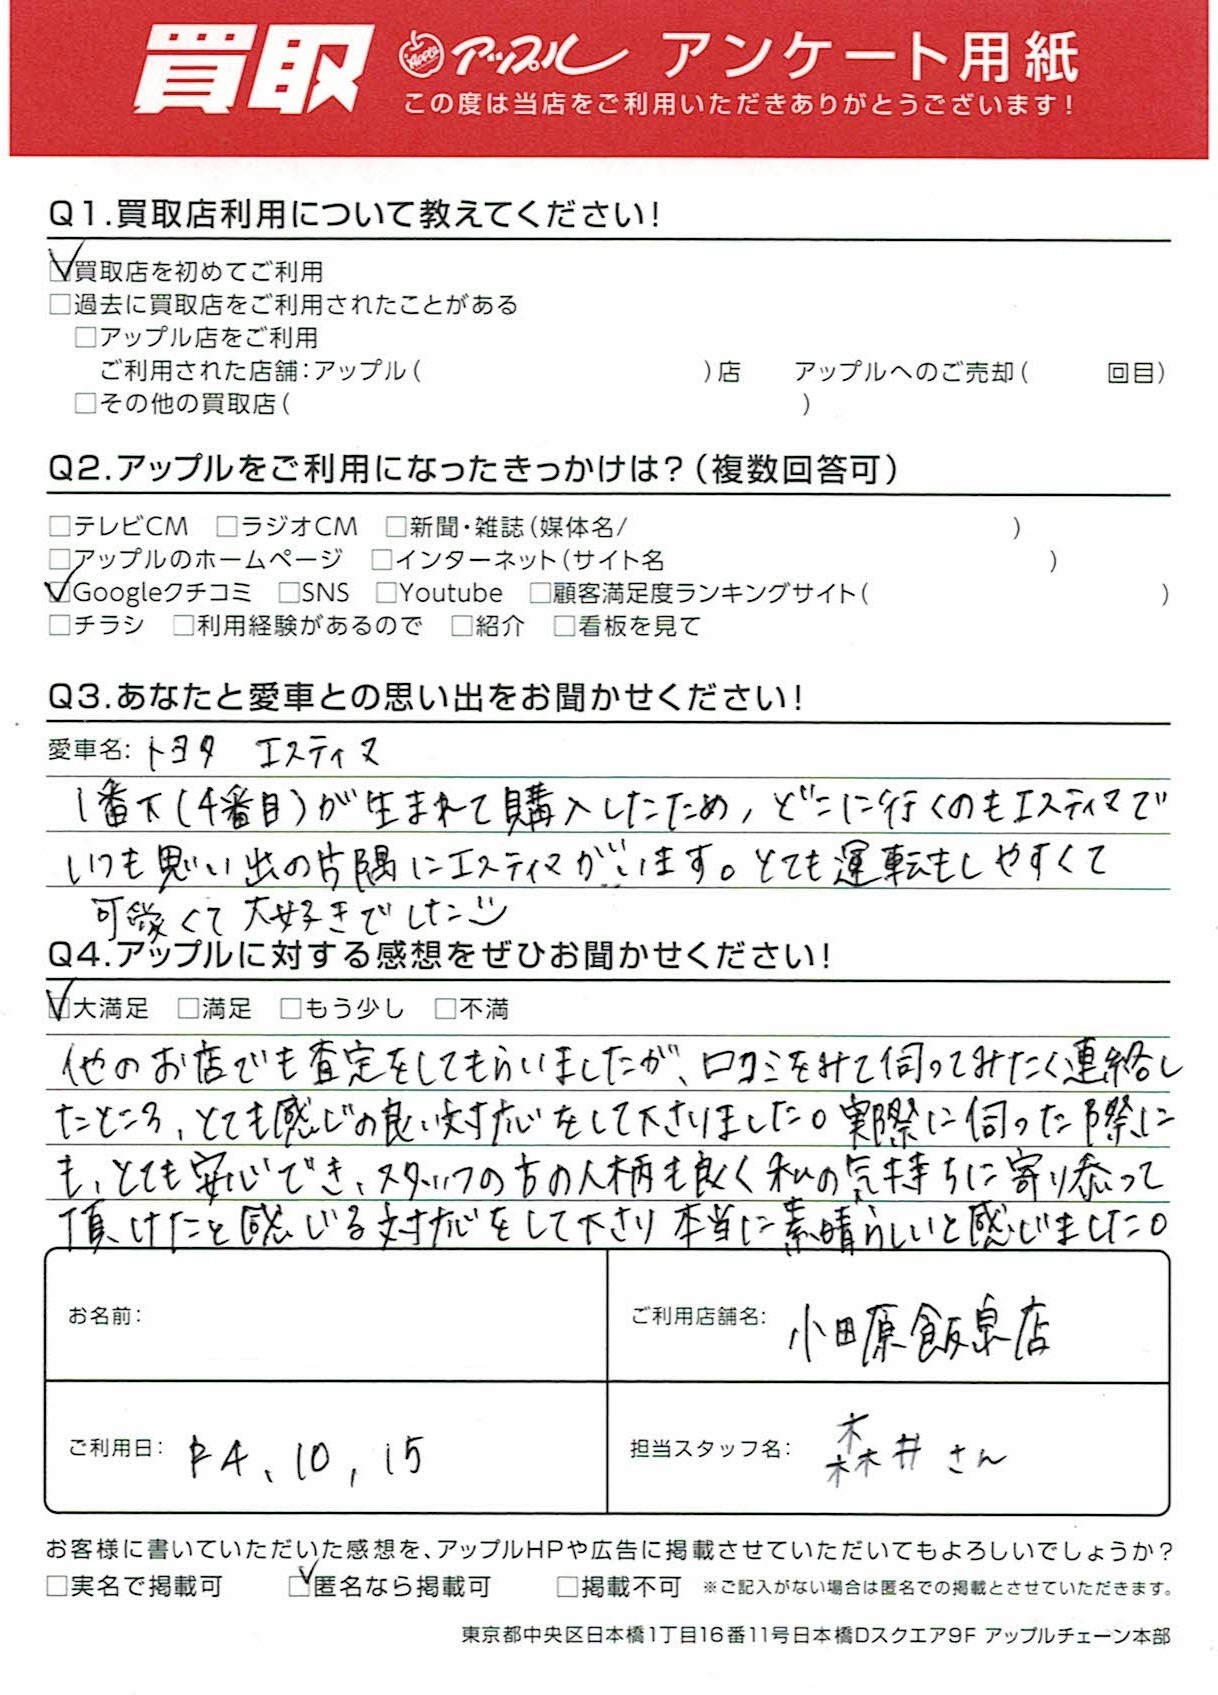 買取 Apple アップル アンケート用紙
この度は当店をご利用いただきありがとうございます!
Q1.買取店利用について教えてください!
☑買取店を初めてご利用
□過去に買取店をご利用されたことがある
□アップル店をご利用
ご利用された店舗:アップル( )店 アップルへのご売却( 回目)
□その他の買取店( )
Q2.アップルをご利用になったきっかけは?(複数回答可)
□テレビCM □ラジオCM □新聞・雑誌(媒体名/ )
□アップルのホームページ □インターネット(サイト名 )
☑Googleクチコミ □SNS □Youtube □顧客満足度ランキングサイト( )
□チラシ □利用経験があるので □紹介 □看板を見て
Q3.あなたと愛車との思い出をお聞かせください!
愛車名: トヨタ エスティマ
1番下(4番目)が生まれて購入したため、どこに行くのもエスティマで
いつも思い出の片隅にエスティマがいます。とても運転もしやすくて
可愛くて大好きでした☺
Q4.アップルに対する感想をぜひお聞かせください!
☑大満足 □満足 □もう少し □不満
他のお店でも査定をしてもらいましたが、口コミをみて伺ってみたく連絡し
たところ、とても感じの良い対応をして下さりました。実際に伺った際に
も、とても安心でき、スタッフの方の人柄も良く私の気持ちに寄り添って
頂けたと感じる対応をして下さり本当に素晴らしいと感じました。
お名前:
ご利用店舗名: 小田原飯泉店
ご利用日: R4、10、15
担当スタッフ名: 森井さん
お客様に書いていただいた感想を、アップルHPや広告に掲載させていただいてもよろしいでしょうか?
□実名で掲載可 ☑匿名なら掲載可 □掲載不可 ※ご記入がない場合は匿名での掲載とさせていただきます。
東京都中央区日本橋1丁目16番11号日本橋Dスクエア9F アップルチェーン本部